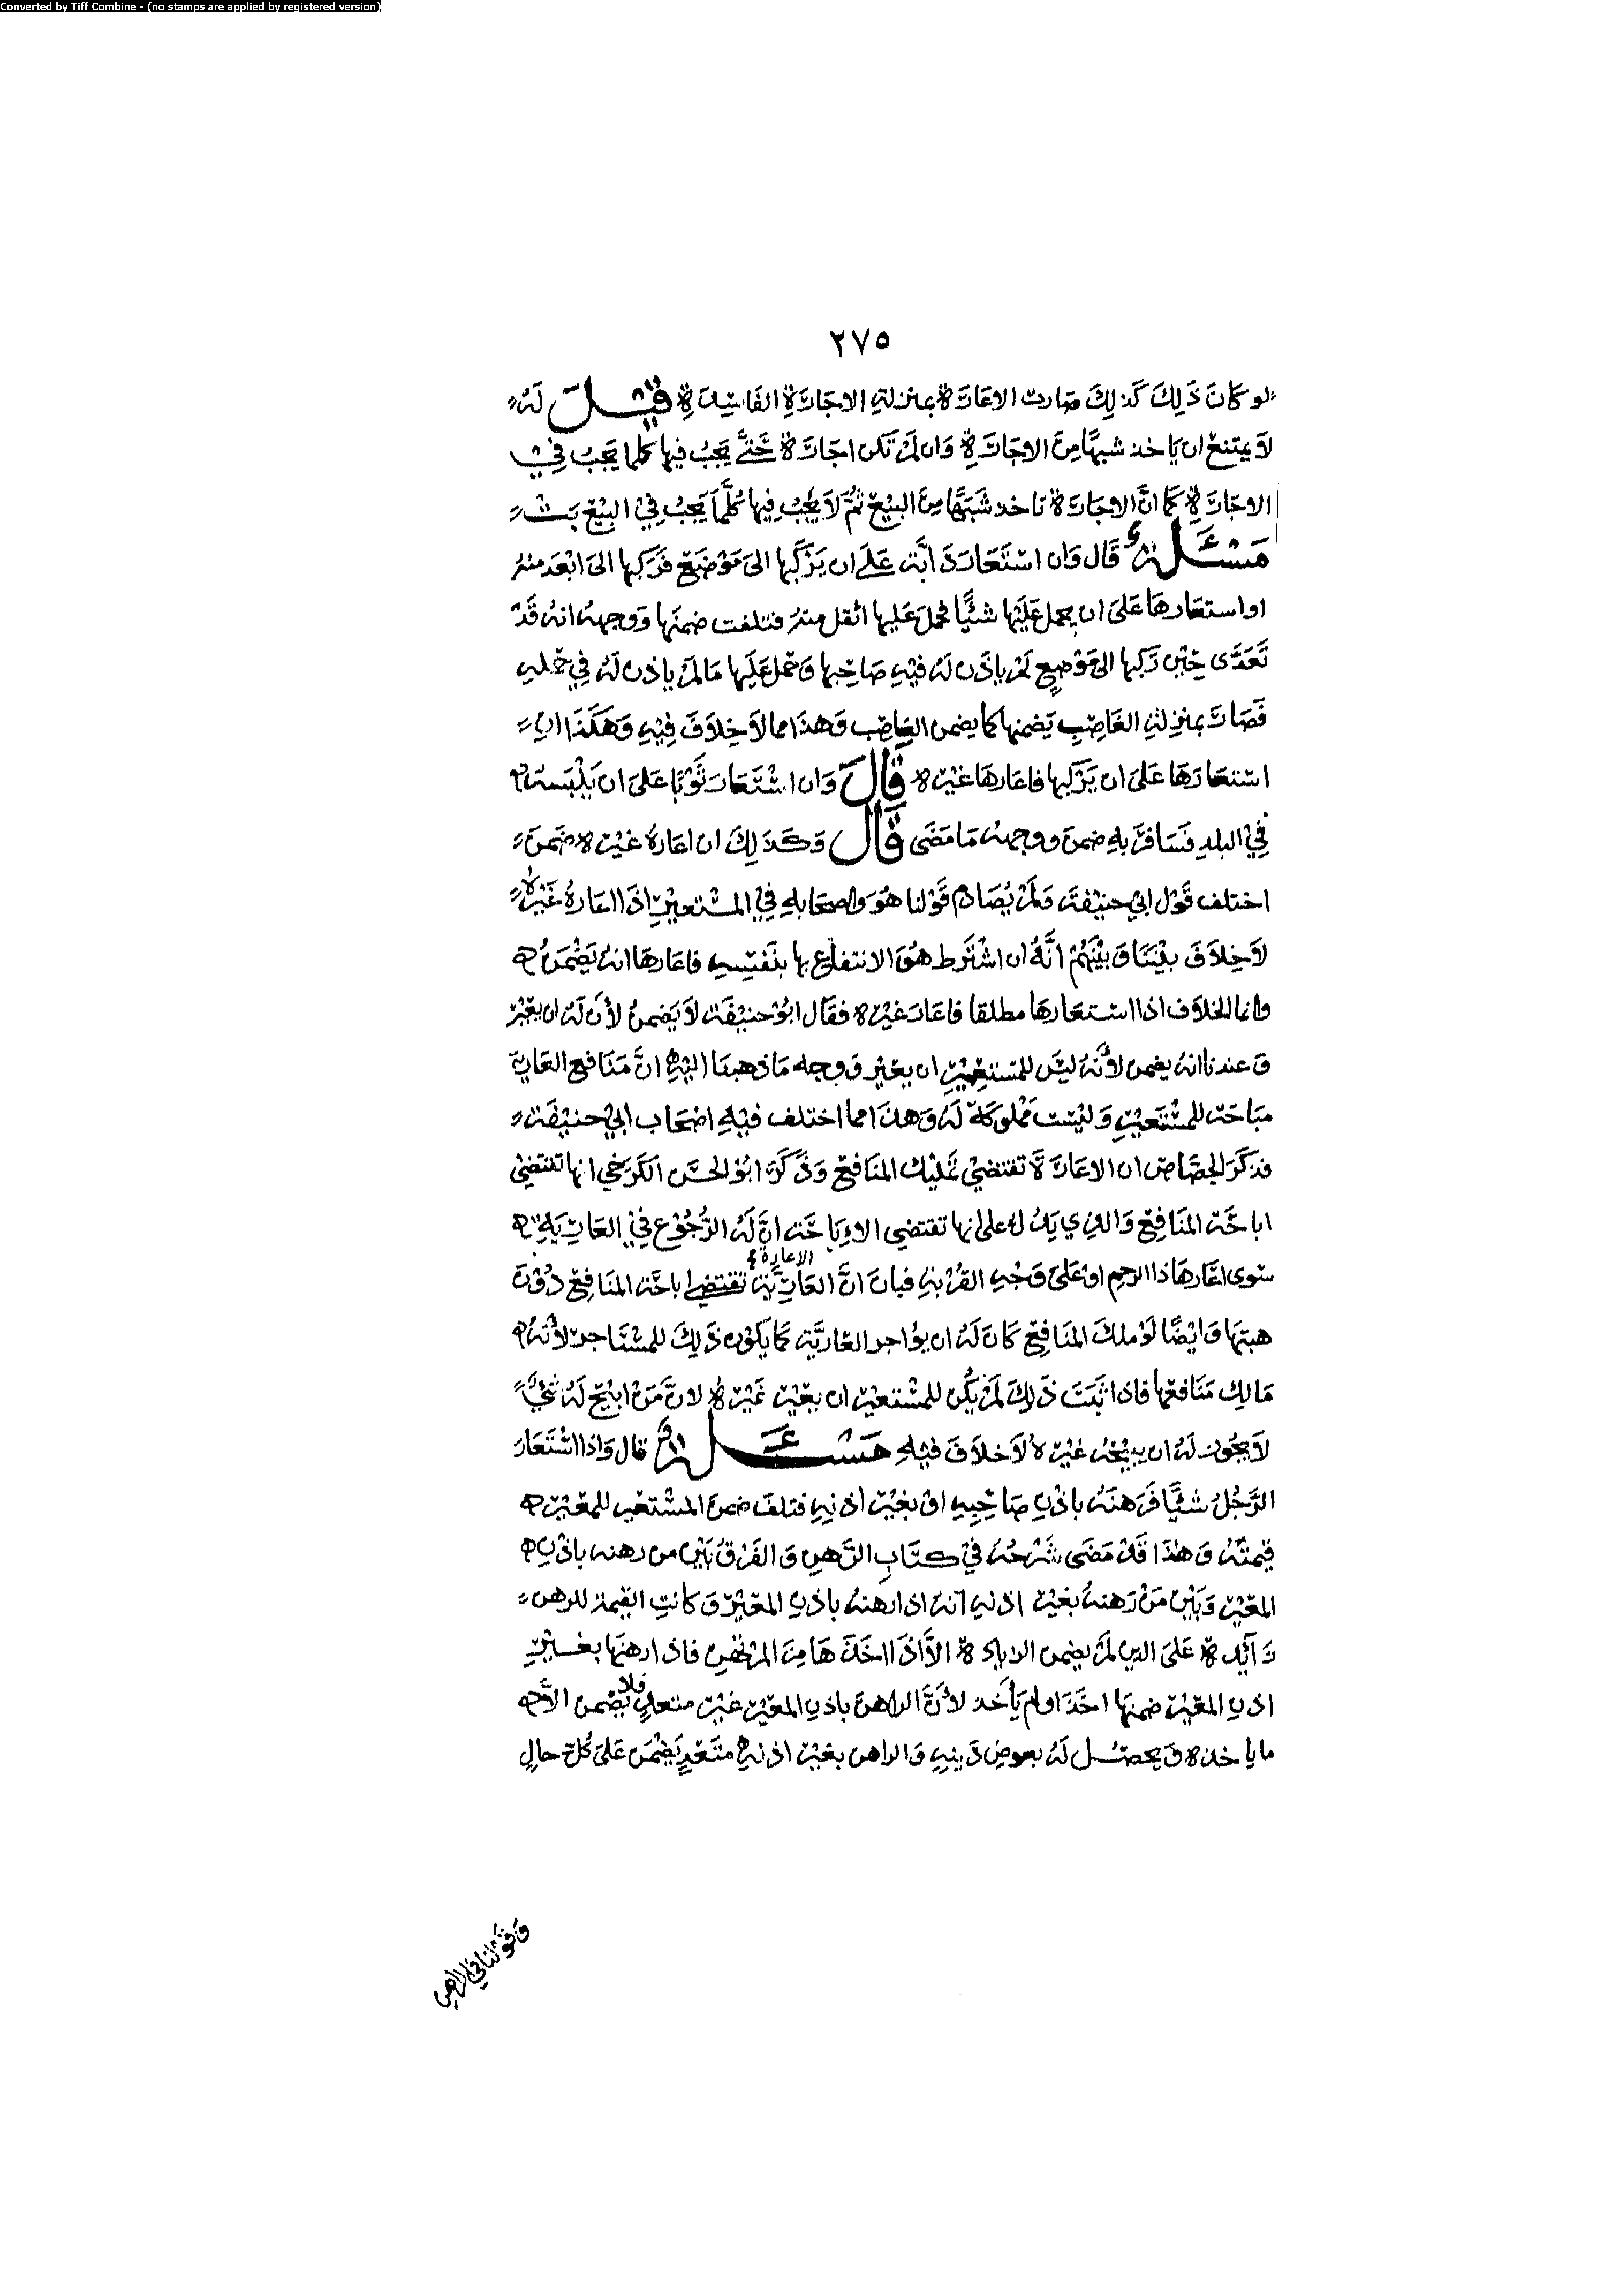 Converted by Tiff Combine - (no stamps are applied by registered version)
٢٧٥
لو كانَ ذَلِكَ كَذلِكَ صارت الاعَارَة بمنزلةِ الاجَارَةِ الفَاسِدَةِ قِيْلَ لَهُ
لاَ يمتنع ان يَاخذ شبهًا مِنَ الاجَارَةِ وَان لَمْ تكن اجَارَة حَتَّى يَجبُ فيها كلما يَجبُ فِي
الاجَارَةِ كمَا انَّ الاجَارَة تاخذ شَبَهًا مِنَ البَيْع ثُمَّ لاَ يَجبُ فِيها كُلَّمَا يَجبُ فِيْ البَيْع
مَسْئَلَة قَال وَان اسْتَعَارَ دَابَّة عَلَى ان يَرْكَبها الىَ مَوْضَع فَرَكِبها الىَ ابْعَد منهُ
او استعَارهَا عَلىَ ان يحمل عَلَيْها شَئًْا فحملَ عَليها اثقل منهُ فتلفت ضمنَها وَوجههُ انهُ قَدْ
تَعَدَّى حِيْن رَكبها الىَ مَوْضِعٍ لَمْ ياذَن لَهُ فِيْهِ صَاحِبها وَحملَ عَلَيها مَا لَمْ ياذن لَهُ فِي حَمْلهِ
فَصَارَ بمنزلةِ الغَاصِبِ يَضمنها كما يضمن الغَاصِب وَهذَا مما لاَ خِلاَفَ فِيْهِ وَهَكَذَا ان
اسْتعَارَهَا عَلىَ ان يَرْكبها فاعَارهَا غَيْره قَالَ وَان اسْتَعَارَ ثَوْبًا عَلىَ ان يَلْبَسهُ
فِيْ البلدِ فَسَافرَ بهِ ضمنَ ووجههُ مَا مَضَى قَالَ وَكَذَلِكَ ان اعَارهُ غَيْره ضَمنَ
اختلف قَوْل ابيْ حنيْفةَ وَلَمْ يُصَادم قَوْلنا هُوَ وَاصحَابه فِيْ المسْتعيْر اذَا اعَارهُ غَيْرهُ
لاَ خِلاَفَ بَيْنَنَا وَبَيْنَهُمْ انَّهُ ان اشْتَرط هُوَ الانتفَاع بها بنَفْسِهِ فاعَارهَا انهُ يَضْمَنُ
وانما الخلاَف اذا استعَارهَا مطلقا فاعَارَ غَيْره فقَال ابُوْ حنيْفَة لاَ يَضمنُ لأن لَهُ ان يعيْر
وَعندنا انهُ يضمن لأنهُ ليْسَ للمستعِيْر ان يعيْر وَوجه مَا ذهبنَا اليْهِ انَّ مَنَافع العَارية
مبَاحَة للمسْتَعيْرِ وَليْسَت مملوكة لَهُ وَهذَا مما اختلف فيْهِ اصْحَاب ابيْ حنيْفَة
فذكَرَ الجصَّاص ان الاعَارَة تَقتضيْ تمليْك المنَافعْ وَذكرَ ابُوْ الحسَن الكَرخي انها تقتضيْ
اباحَة المنَافِع وَالذي يَدُل على انها تقتضي الاِبَاحَة انَّ لَهُ الرُّجُوْع فيْ العَارِيَةِ
سَوى اعَارهَا ذا الرحم اوْ عَلىَ وَجْهِ القُرْبَةِ فبانَ انَّ العَارِيَّة تقتضي اباحَة المنَافِع دُوْنَ
الاعارة
هبتها وَايْضًا لَوْ ملكَ المنَافِع كَانَ لَهُ ان يوُاجر العَاريَّة كمَا يكوْن ذَلِكَ للمسْتَاجر لأنهُ
مَالِك مَنَافعها فاذا ثَبَتَ ذَلِكَ لَمْ يَكُن للمسْتعيْر ان يعيْر غَيْره لانَّ مَنْ ابيْحَ لَهُ شَيْءٌ
لاَ يجُوز لَهُ ان يبيْحَهُ غَيْرهُ لاَ خلاَفَ فيْهِ مَسْئَلَة قال وَاذا اسْتَعَارَ
الرَّجُلُ شَئًْا فَرَهنَهُ باذْنِ صَاحِبِهِ اوْ بغيْر اذنِهِ فتلفَ ضمنَ المسْتعيْر للمعيْر
قيمتَهُ وَهَذَا قَدْ مَضَى شَرْحُهُ فيْ كتَابِ الرَّهنِ وَالفَرْقُ بَيْن من رهنه باذْنِ
المعيْر وَبَيْن مَنْ رَهنهُ بغيْر اذنهِ انهُ اذا رهنهُ باذنِ المعيْر وَكانتِ القيْمة للرهن
زَائِدة عَلىَ الدين لَمْ يضمن الزيادة الاَّ اذَا اخذهَا مِنَ المرْتهن فاذا رهنَها بغيْرِ
اذنِ المعيْر ضمنهَا اخَذَ او لم يَأخذ لأنَّ الراهنَ باذنِ المعيْر غيْر متعدٍ فلا يضمن الاَّ
ما ياخذه وَيحصُل لَهُ بعوض دَينِهِ وَالراهن بغيْر اذنهِ متَعَدٍ يَضْمَن عَلىَ كُلّ حالِ